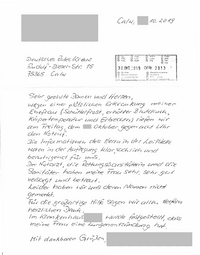 Calw, 10.2013
Deutsches Rotes Kreuz
Rudolf-Diesel-Str. 15
75365 Calw
Sehr geehrte Damen und Herren,
wegen einer plötzlichen Erkrankung meiner
Ehefrau (Schüttelfrost, erhöhter Blutdruck,
Körpertemperatur und Erbrechen) riefen wir
am Freitag, dem Oktober gegen acht Uhr
den Notruf.
Die Informationen des Herrn in der Leitstelle
waren in der Aufregung klar, sachlich und
beruhigend für uns.
Der Notarzt, die Rettungsassistentin und die
Sanitäter haben meine Frau sehr, sehr gut
versorgt und betreut.
Leider haben wir uns deren Namen nicht
gemerkt.
Für die großartige Hilfe sagen wir allen Helfern
herzlichen Dank.
Im Krankenhaus wurde festgestellt, dass
meine Frau eine Lungenentzündung hat.
Mit dankbaren Grüßen